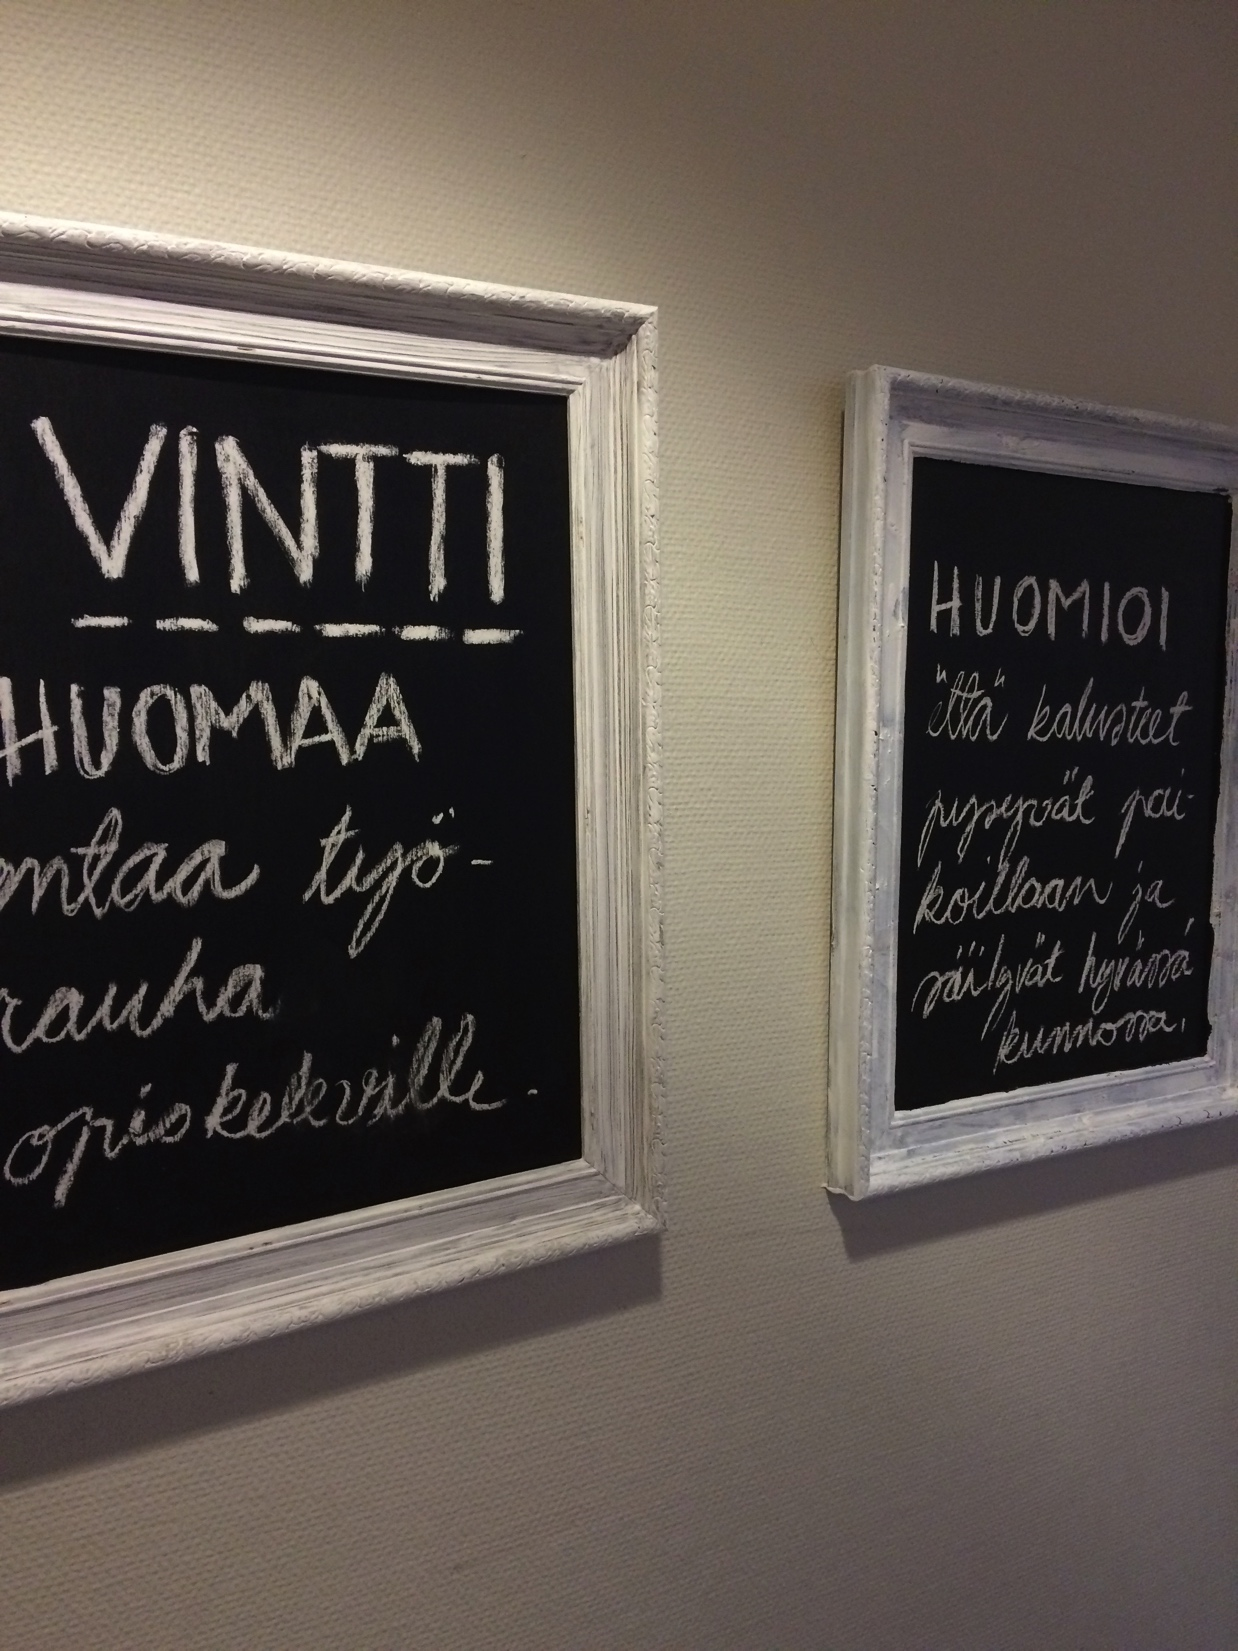 VINTTI
HUOMAA
antaa työ-
rauha
opiskeleville.
HUOMIOI
että kalusteet
pysyvät pai-
koillaan ja
säilyvät hyvässä
kunnossa.